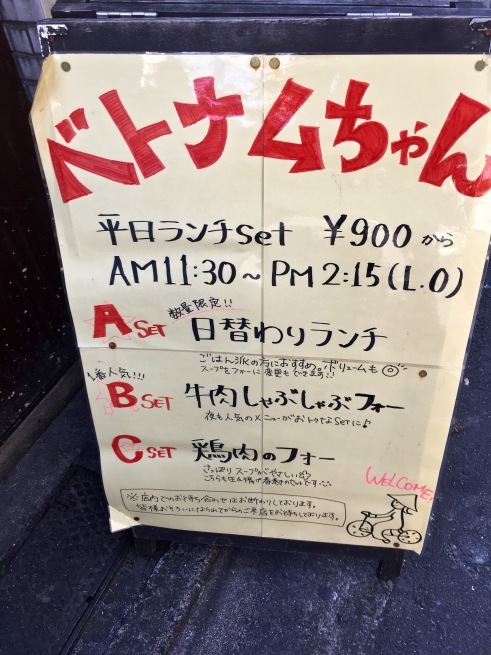 ベトナムちゃん
平日ランチSet ¥900から
AM11:30～PM2:15(L.O)
数量限定!!
A SET 日替わりランチ
ごはん派の方におすすめ。ボリュームも◎
スープをフォーに変更もできます!!
1番人気!!!
B SET 牛肉しゃぶしゃぶフォー
夜も人気のメニューがおトクなSetに♪
C SET 鶏肉のフォー
さっぱりスープがやさしい
こちらも生or揚げ春巻きのセットです
WELCOME!
※店内でのお待ち合わせはお断わりしております。
皆様おそろいになられてからのご来店をお待ちしております。